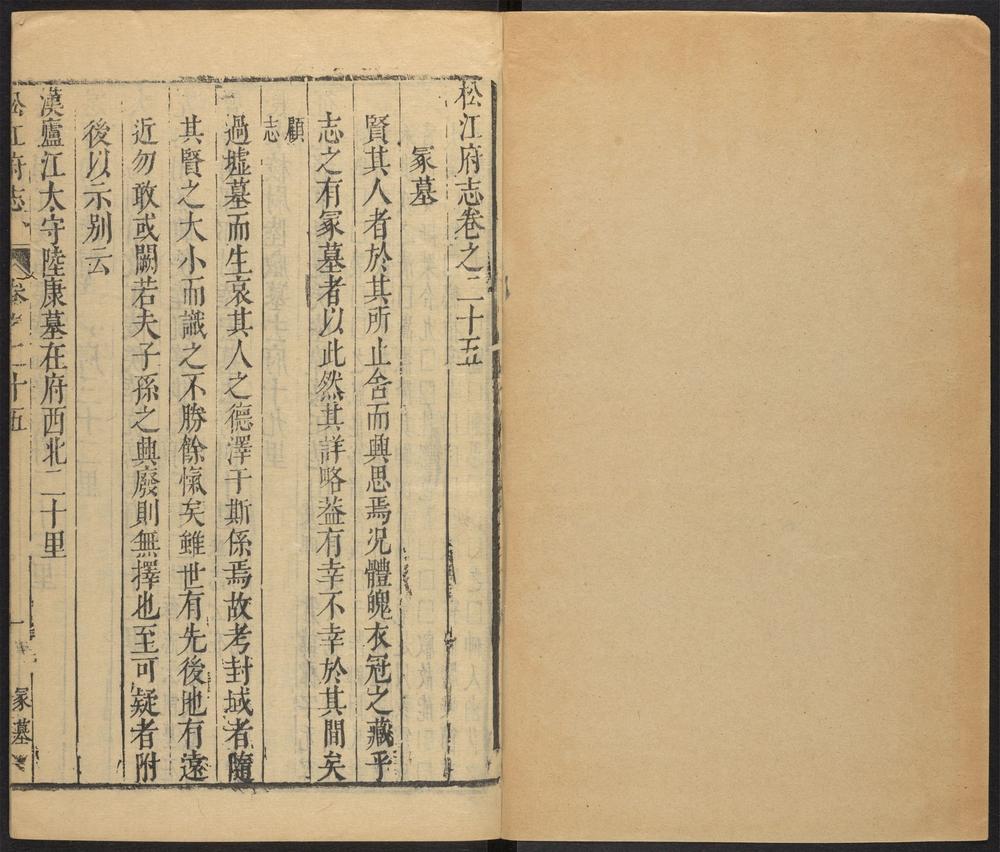 松江府志卷之二十五
冢墓
賢其人者於其所止舍而興思焉况體魄衣冠之藏乎
志之有冢墓者以此然其詳略葢有幸不幸於其間矣
顧
志
過墟墓而生哀其人之德澤于斯係焉故考封域者隨
其賢之大小而識之不勝餘愾矣雖世有先後地有遠
近勿敢或闕若夫子孫之興廢則無擇也至可疑者附
後以示别云
漢廬江太守陸康墓在府西北二十里
松江府志
卷之二十五
一
冢墓